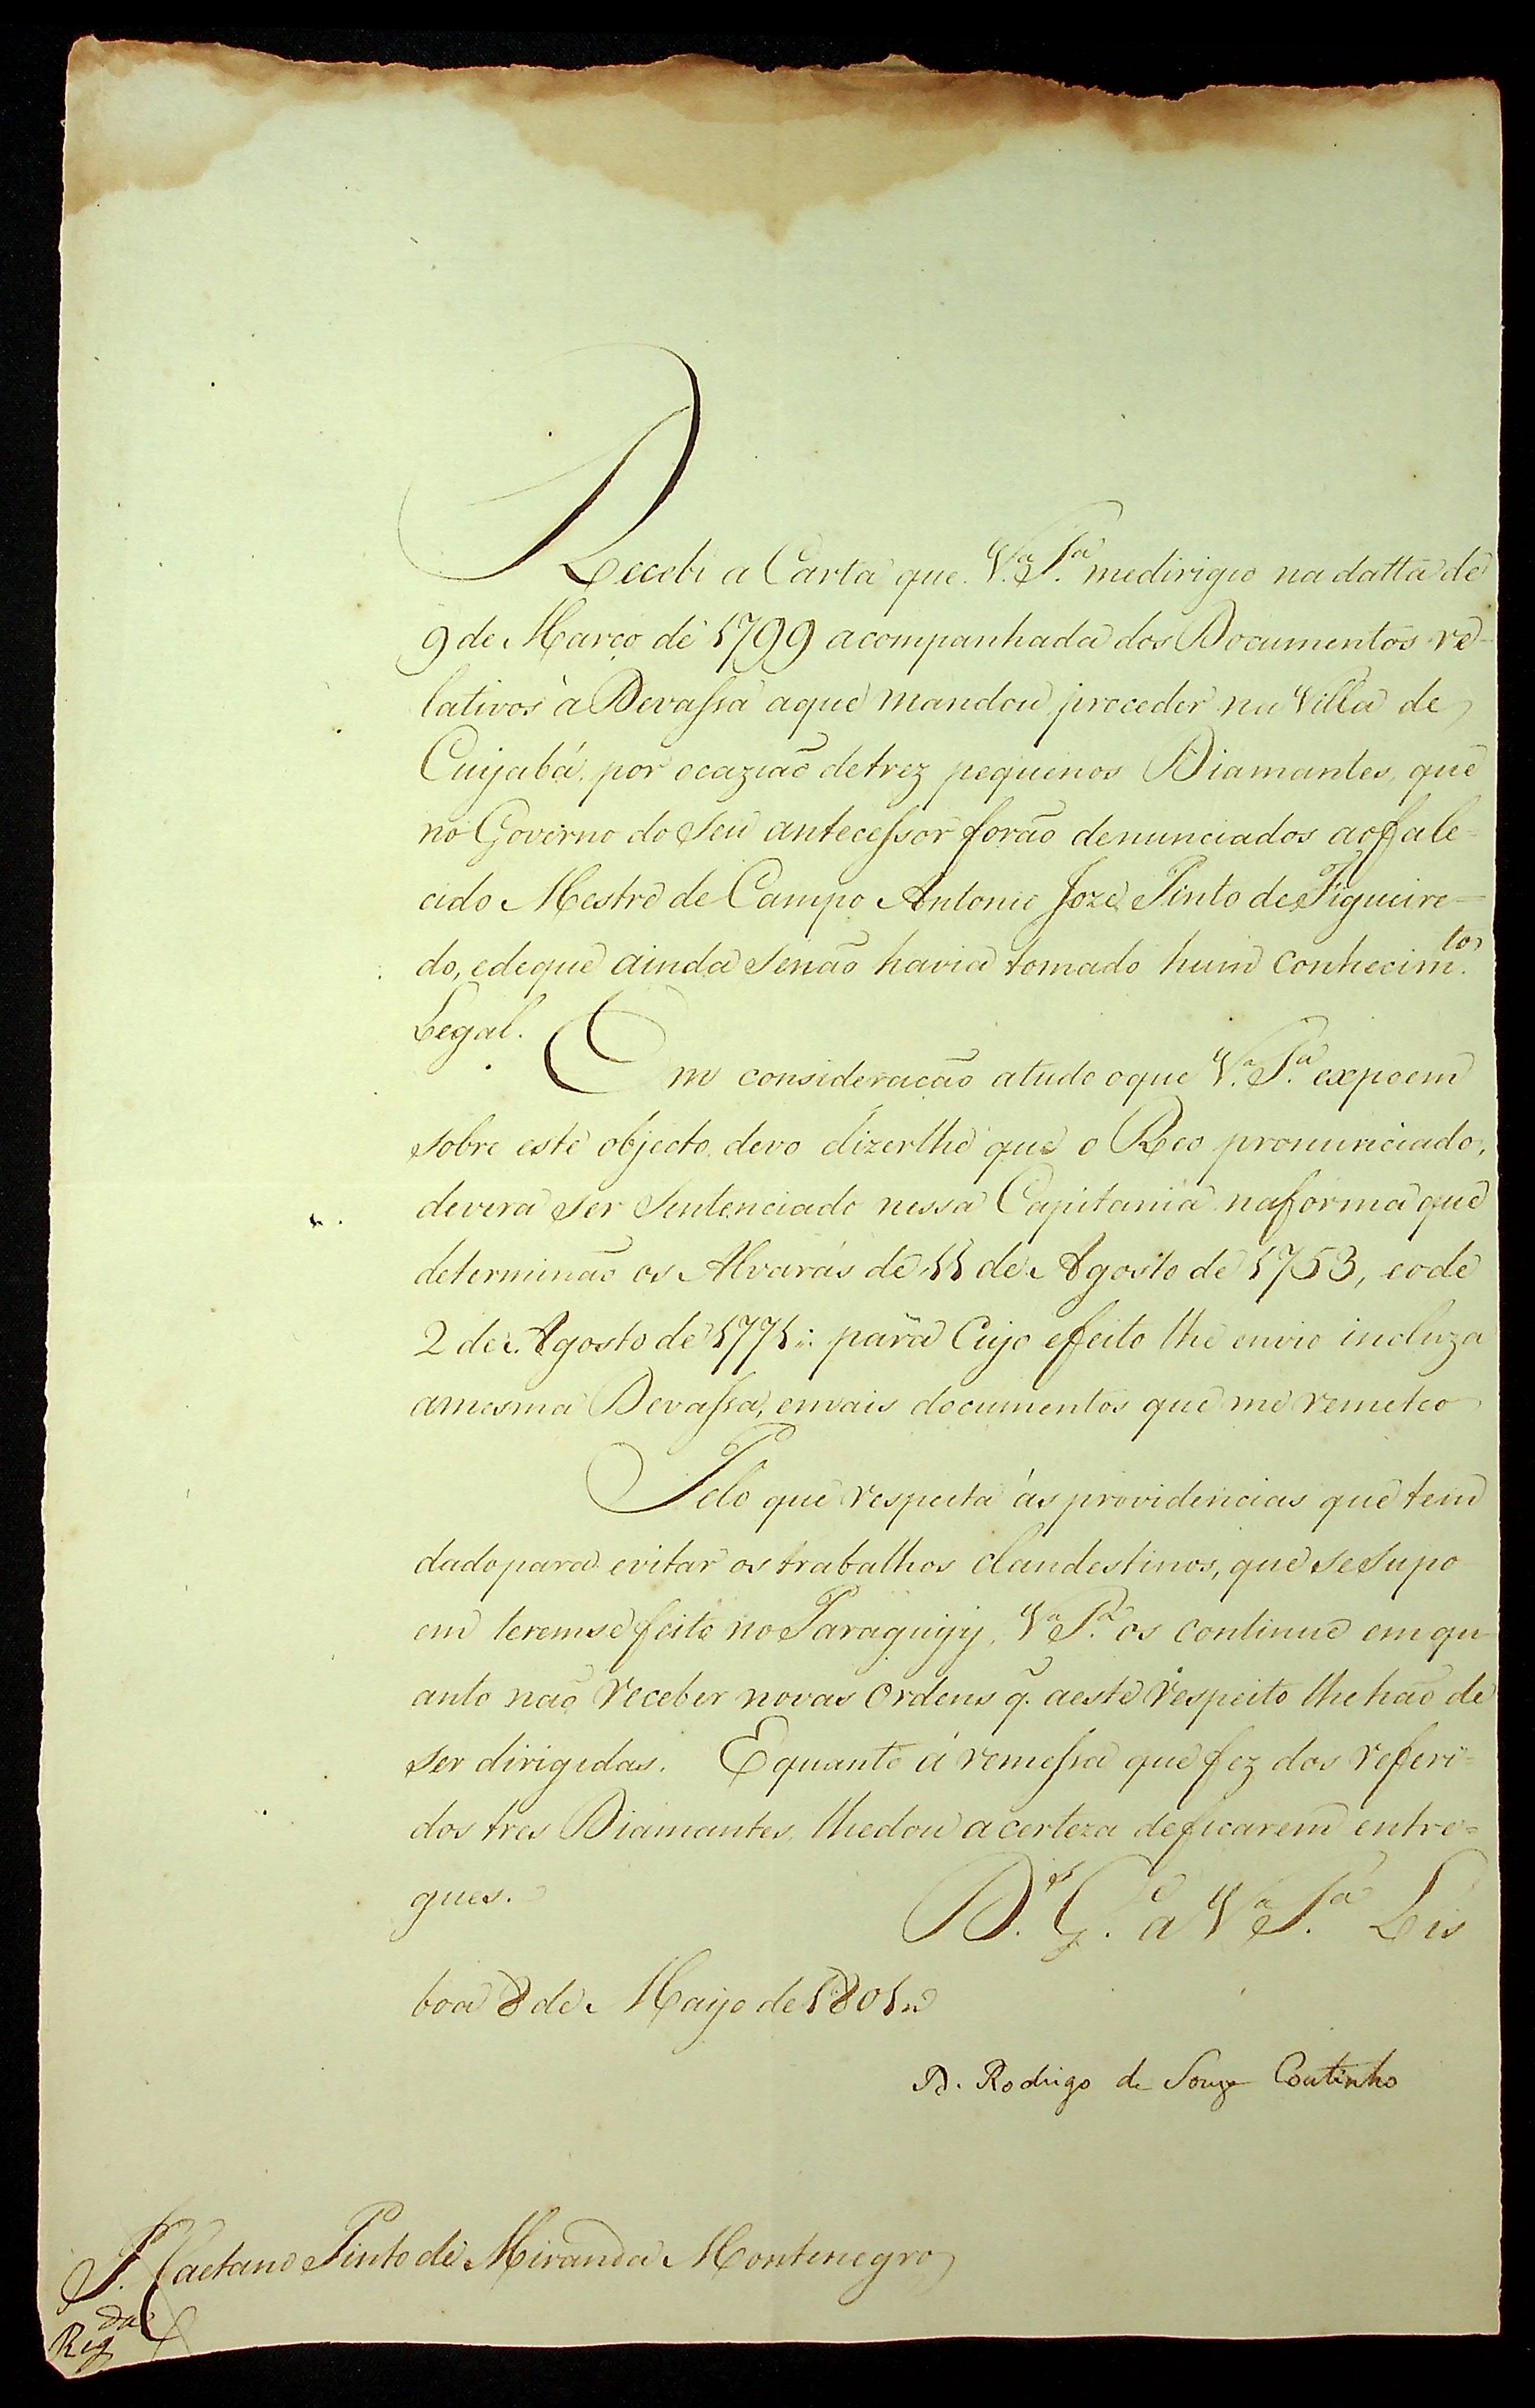 Recebi a Carta que V.ª S.ª medirigio na datta de
9 de Março de 1799 acompanhada dos Documentos re-
lativos à Devassa aque mandou proceder na Villa de
Cuijabá por ocazião detrez pequenos Diamantes, que
no Governo do Seu antecessor forão denunciados aofale-
cido Mestre de Campo Antonio Joze Pinto de Figueire-
do, edeque ainda senão havia tomado hum conhecim.tos
Legal.
Em consideração atudo oque V.ª S.ª expoem
sobre este objecto, devo dizerlhe que o Reo pronunciado,
devera ser Sentenciado nessa Capitania naforma que
determinão os Alvarás de 11 de Agosto de 1753, eode
2 de Agosto de 1771: para Cujo effeito lhe envio incluza
amesma Devassa, emais documentos que me remeteo
Pelo que respeita ás providencias que tem
dadopara evitar os trabalhos clandestinos, que sesupo
em teremse feito no Paraguiy, V.ª S.ª os continue emqu
anto não receber novas Ordens q̃. aeste respeito lhehão de
ser dirigidas. Equanto á remessa que fez dos referi-
dos tres Diamantes, lhedou acerteza deficarem entre-
gues.
D.s G.e a V.ª S.ª Lis
boa 8 de Maijo de 1801
D. Rodrigo de Souza Coutinho
S.r Caetano Pinto de Miranda Montenegro
Reg.da